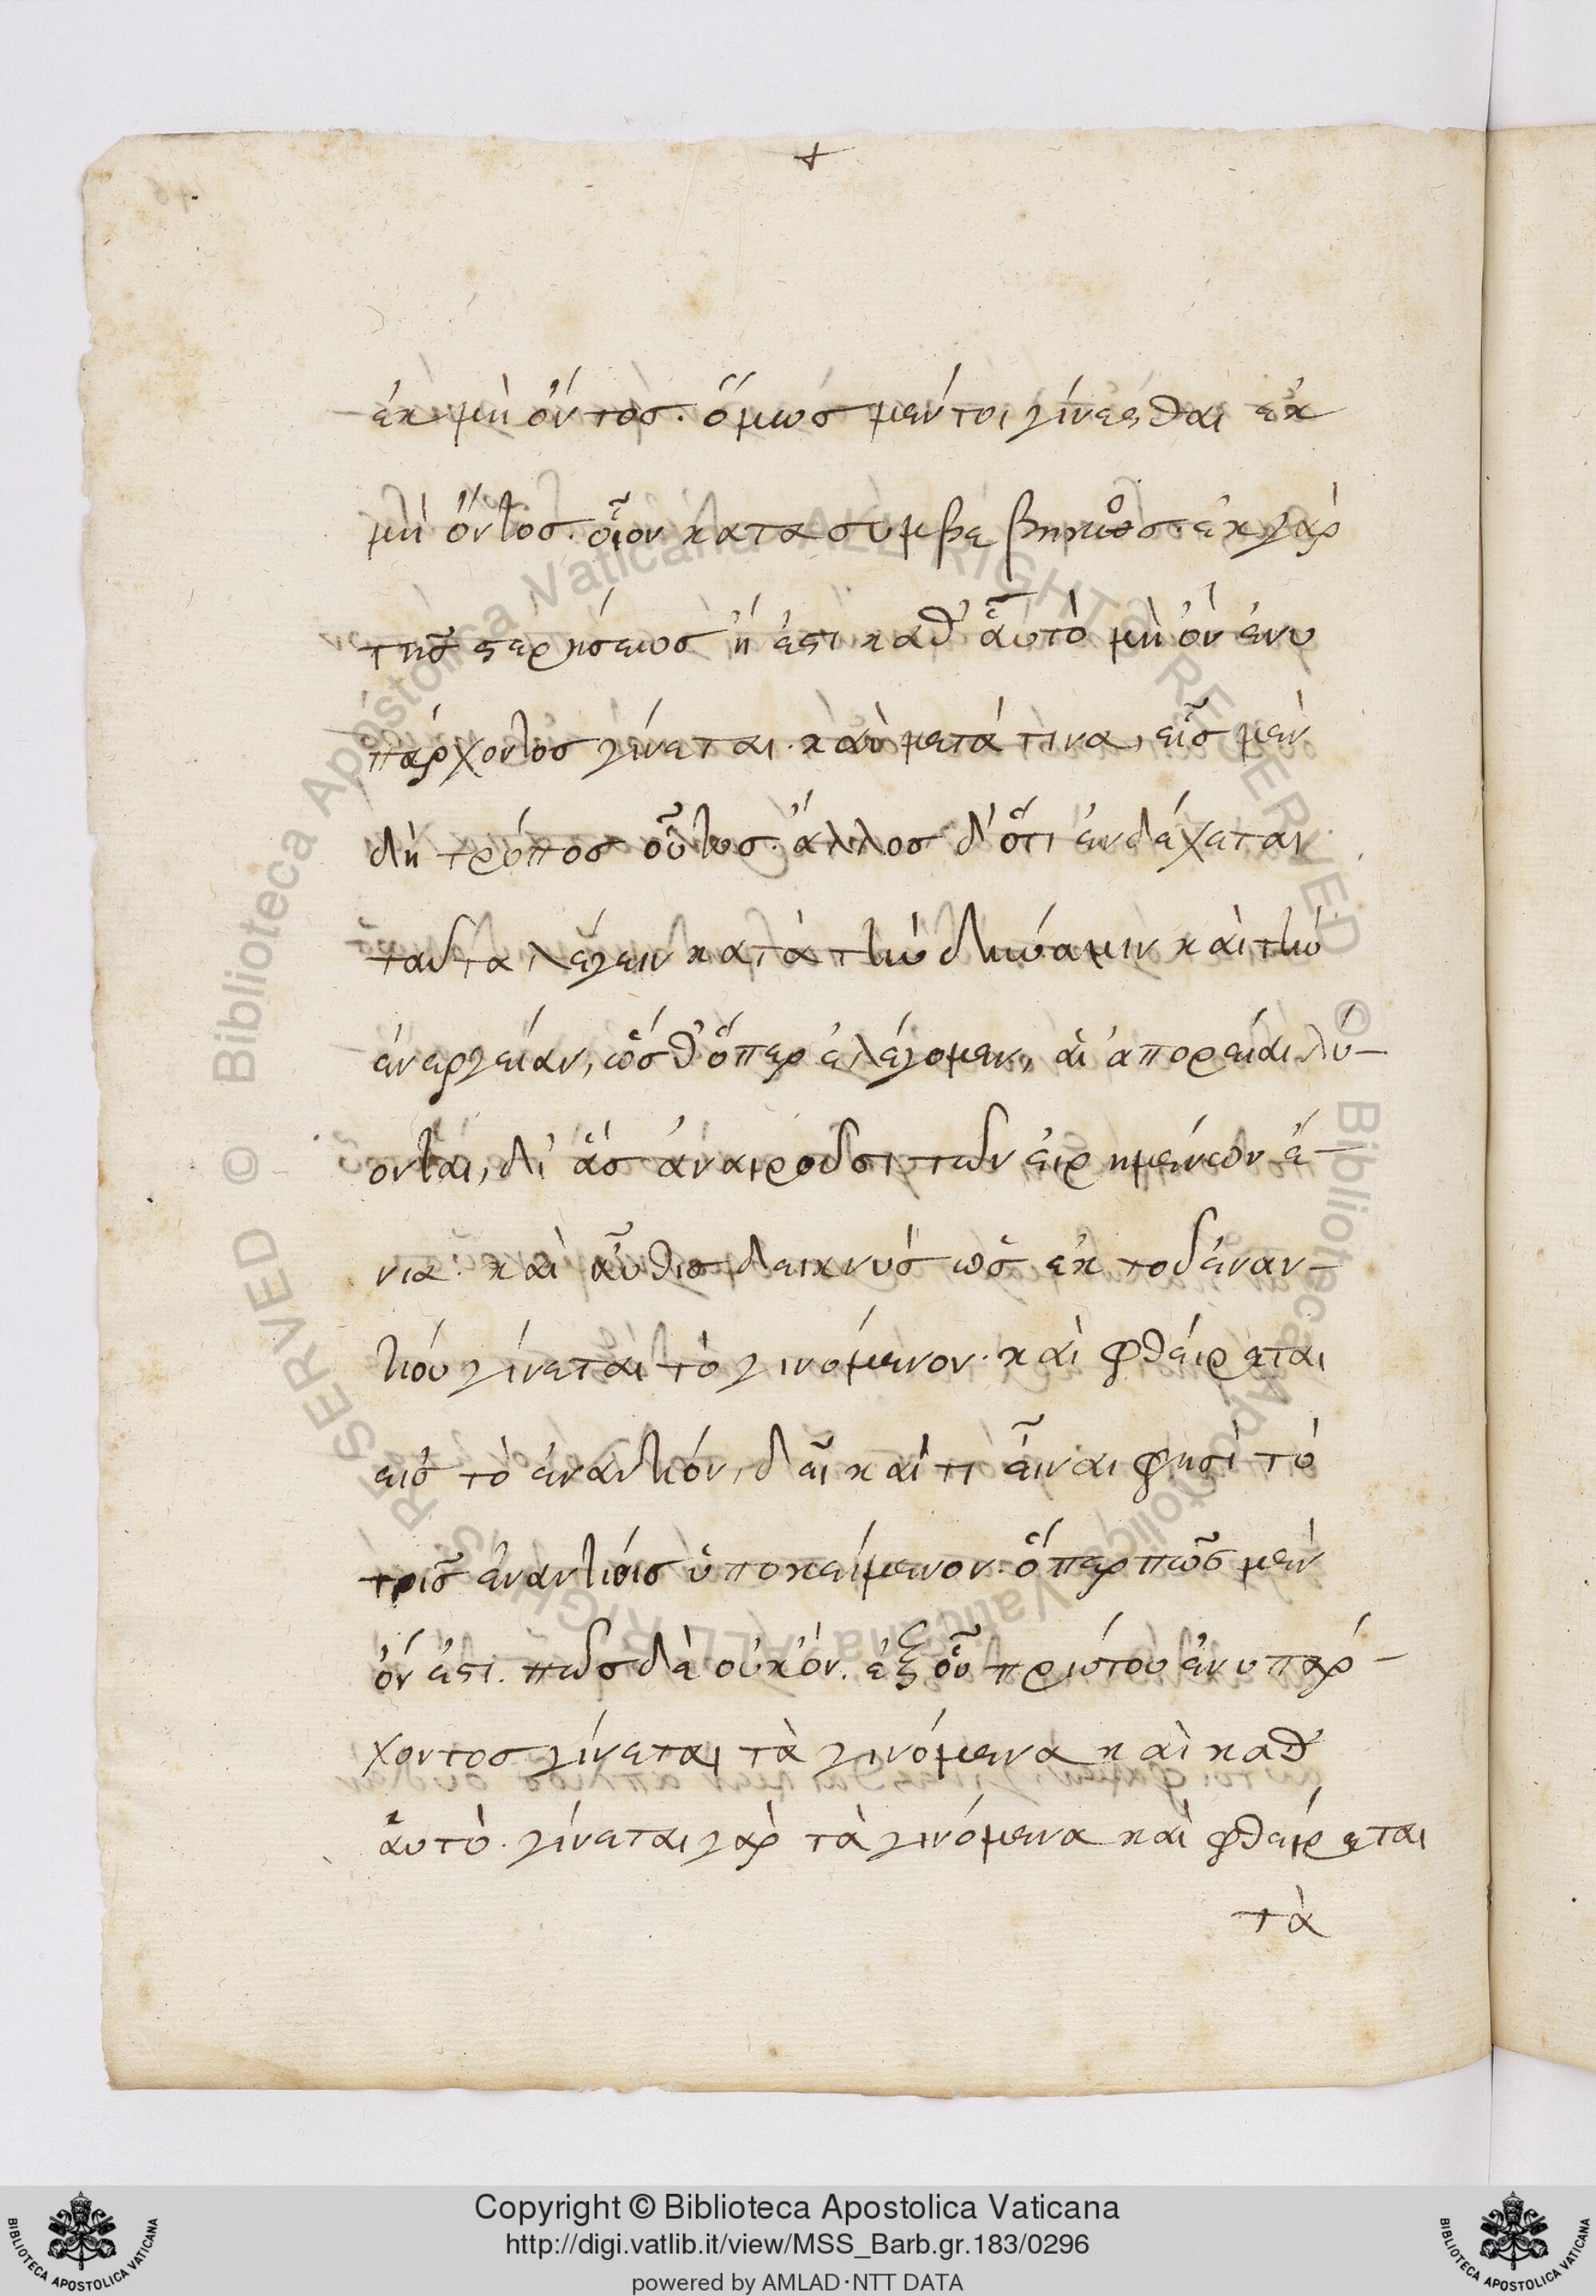 +
ἐκ μὴ ὄντος. ὅμως μέντοι γίνεσθαι ἐκ
μὴ ὄντος. οἷον κατα συμβεβηκός. ἐκ γὰρ
τῆς στερήσεως ἥ ἐστι καθ' ἁυτὸ μὴ ὂν ἐνυ
πάρχοντος γίνεται. καὶ μετά τινα, εἷς μὲν
δὴ τρόπος οὗτος. ἄλλος δ' ὅτι ἐνδέχεται
ταῦτα λέγειν κατὰ τὴν δύναμιν καὶ τὴν
ἐνεργείαν, ὥσθ' ὅπερ ἐλέγομεν, ἁι ἀπορείαι λύ-
ονται, δι' ἃς ἀναιροῦσι τῶν ἐιρημένων ἔ-
νια. καὶ αὖθις δεικνὺς ὡς ἐκ τοῦ ἐναν-
τίου γίνεται τὸ γινόμενον. καὶ φθείρεται
εἰς τὸ ἐναντίον, δεῖ καί τι εἶναι φησὶ τὸ
τοῖς ἐναντίοις ὑποκείμενον. ὅπερ πῶς μὲν
ὄν ἐστι. πῶς δὲ οὐκ ὄν. ἐξ οὗ πρώτου ἐνυπάρ-
χοντος γίνεται τὰ γινόμενα καὶ καθ'
ἁυτὸ. γίνεται γὰρ τὰ γινόμενα καὶ φθείρεται
τὰ
Copyright © Biblioteca Apostolica Vaticana
http://digi.vatlib.it/view/MSS_Barb.gr.183/0296
powered by AMLAD·NTT DATA
BIBLIOTECA APOSTOLICA VATICANA
BIBLIOTECA APOSTOLICA VATICANA